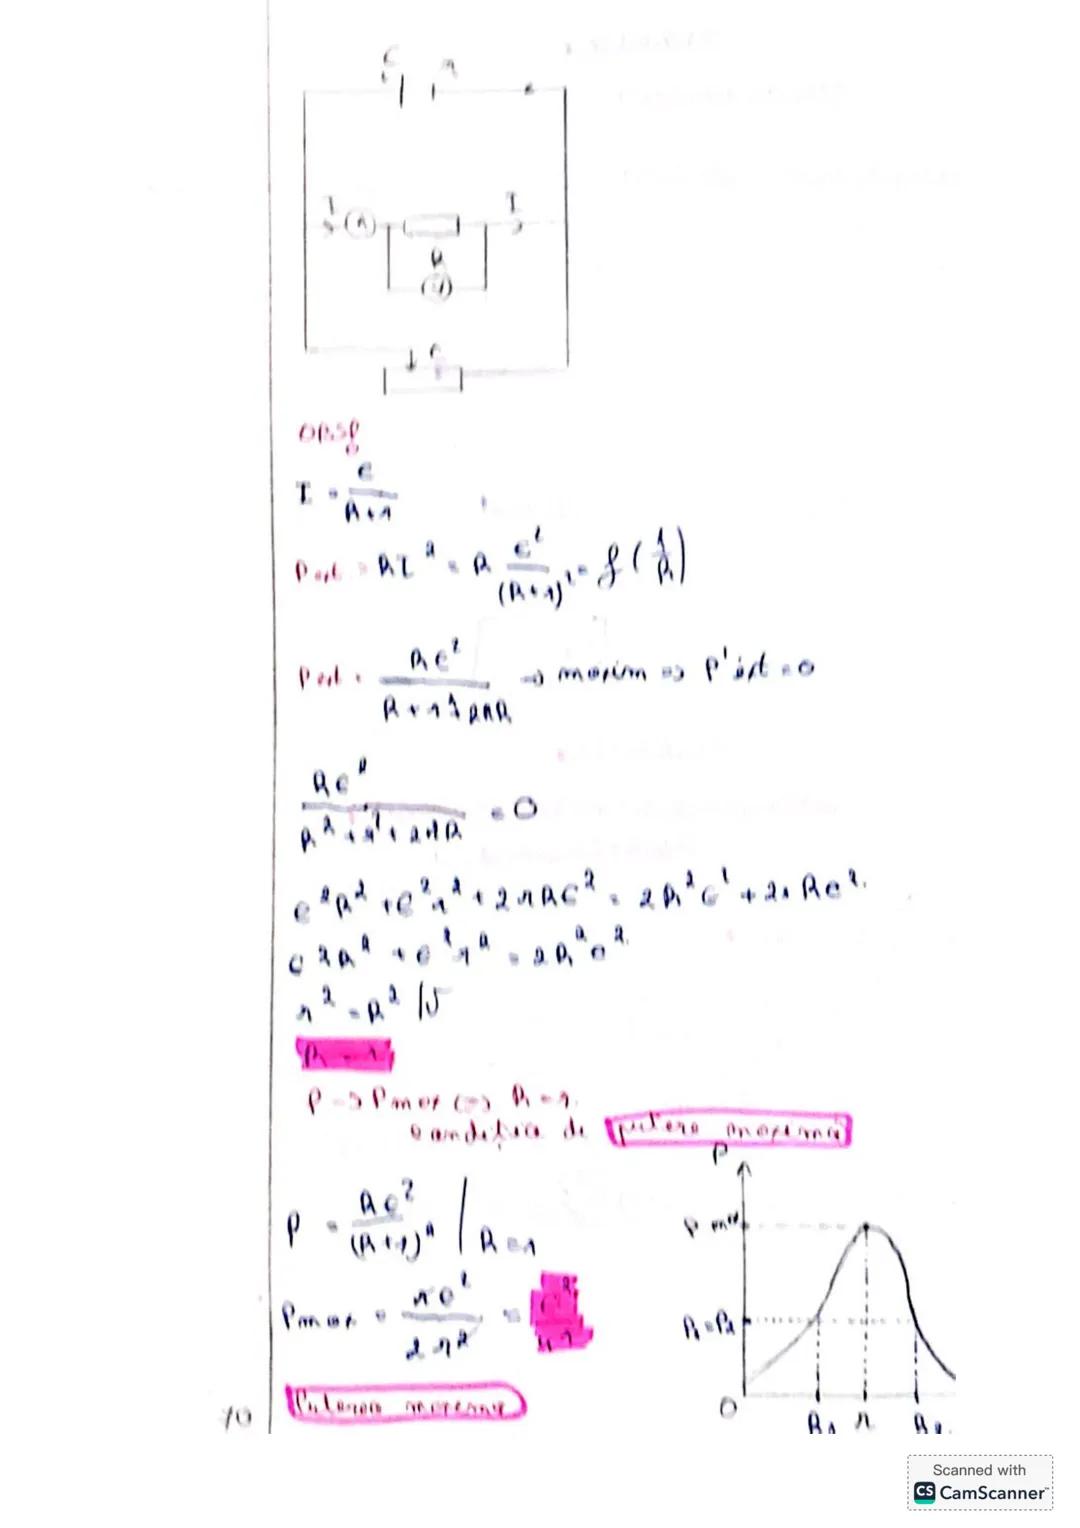 E r
I A I
R
V
OBS!
I = E / R+r
Pext = RI² = R E² / (R+r)² = f(1/R)
Pext = RE² / R+r²+2rR → maxim => P'ext = 0
RE² / R²+r²+2rR = 0
E²R² + E²r² + 2rRE² = 2R²E² + 2rRE².
E²R² + E²r² = 2R²E².
r² = R² /√
R = r
P → Pmax <=> R = r.
condiția de putere maximă
P = RE² / (R+r)² | R = r
Pmax = rE² / 2r² = E² / 4r
Puterea maximă
P
Pmax
P1 = P2
O R1 r R2
70
Scanned with
CS CamScanner